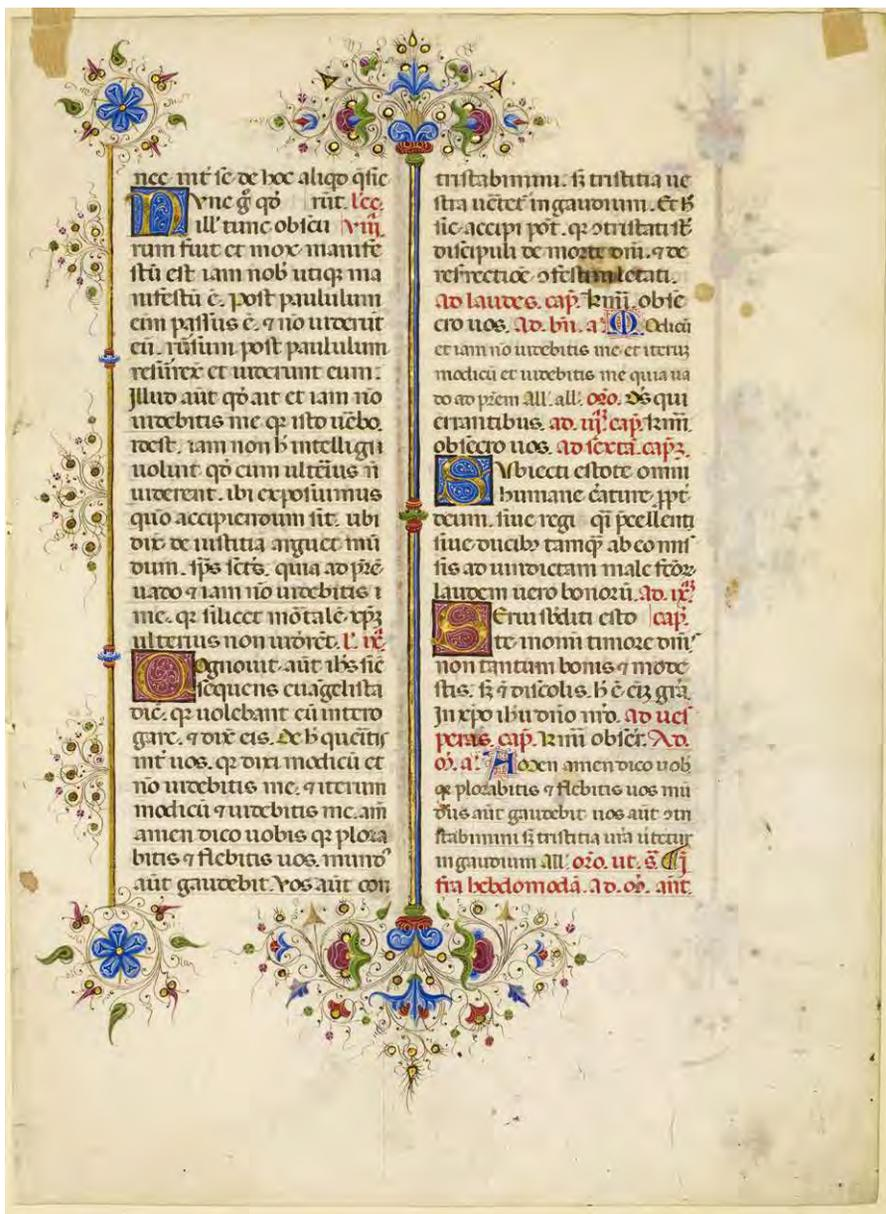 nec int̃ se de hoc aliq̃o q̃sie
Nvnc g̃ qõ rũt. l'cc.
ill' tunc obscu viiɉ.
rum fuit et mox manife
stũ est iam nob' utiq; ma
nifestũ ẽ. post paululum
eim passus ẽ. ⁊ nõ viderũt
eũ. rũsum post paululum
resurrex̃ et viderunt eum:
Illud aũt qõ ait et iam nõ
videbitis me qz isto ṽbo.
idest. iam non h̃ intelligi
voluit qõ cum ult̃ius ñ
viderent. ibi exposuimus
quõ accipiendum sit. ubi
dix̃ de iustitia arguet mũ
dum. sp̃s sc̃ts. quia ad p̃rẽ
vado ⁊ iam nõ videbitis
me. qz silicet mõtalẽ xp̃z
ulterius non vidr̃ẽt. l'. ix̃.
Cognovit aũt ih̃s sic
sequens evãgelista
dic̃. qz volebant eũ intero
gare. ⁊ dix̃ eis. De h̃ querit̃
int̃ vos. qz dixi modicũ et
nõ videbitis me. ⁊ iterum
modicũ ⁊ videbitis me. am̃
amen dico vobis qz plora
bitis ⁊ flebitis vos. mund'
aũt gaudebit. Vos aũt con
tristabimini. s; tristitia ve
stra ṽtet' in gaudium. Et h̃
sic accipi põt. qz ɔtristati st̃
discipuli de morte dñi. ⁊ de
resrectiõe
ad laudes. cap̃. kr̃mi. obse
cro vos. ad. bñi. a'. Modicũ
et iam nõ videbitis me et iteruz
modicũ et videbitis me quia va
do ad p̃rem All'. all'. or̃o. Ds̃ qui
errantibus. ad. iiɉ. cap̃. kr̃mi.
obsecro vos. ad sextã. cap̃z.
Svbiecti estote omni
humane c̃ature. ppt̃
deum. sive regi qi p̃cellenti
sive ducib; tamq̃ ab eo mis
sis ad vindictam malefctõr
laudem vero bonorũ. ad. ix̃.
Servi sb̃diti esto cap̃.
te in omi timore dñis
non tantum bonis ⁊ mode
stis. s; ⁊ discolis. h̃ ẽ ei; gr̃a.
In xp̃o ih̃u dño nr̃o. ad ves
peras. cap̃. kr̃mi obsec̃. Ad.
oɞ̃. a'. Amen amen dico vob'
qz plorabitis ⁊ flebitis vos mũ
d'us aũt gaudebit vos aũt ɔtri
stabimini s; tristitia vr̃a ṽtetur
in gaudium All'. or̃o. ut. s̃. In
fra hebdomodã. ad. oɞ̃. ant.